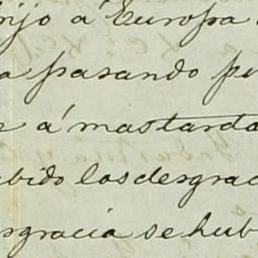 rijo á Europa
a pasando p
r á mastarda
bido las desgrac
sgracia se hub